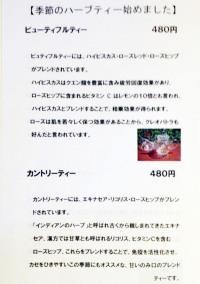 【季節のハーブティー始めました】
ビューティフルティー 480円
ビュティフルティーには、ハイビスカス・ローズレッド・ローズヒップ
がブレンドされています。
ハイビスカスはクエン酸を豊富に含み疲労回復効果があり、
ローズヒップに含まれるビタミンCはレモンの10倍とも言われ、
ハイビスカスとブレンドすることで、相乗効果が得られます。
ローズは肌を若々しく保つ効果があることから、クレオパトラも
好んだと言われています。
カントリーティー 480円
カントリーティーには、エキナセア・リコリス・ローズヒップがブレン
ドされています。
「インディアンのハーブ」と呼ばれ古くから親しまれてきたエキナ
セア、漢方では甘草とも呼ばれるリコリス、ビタミンCを含む
ローズヒップ、これらをブレンドすることで、免疫を活性化させ、
カゼをひきやすいこの季節にもオススメな、甘いのみ口のブレンド
ティーです。